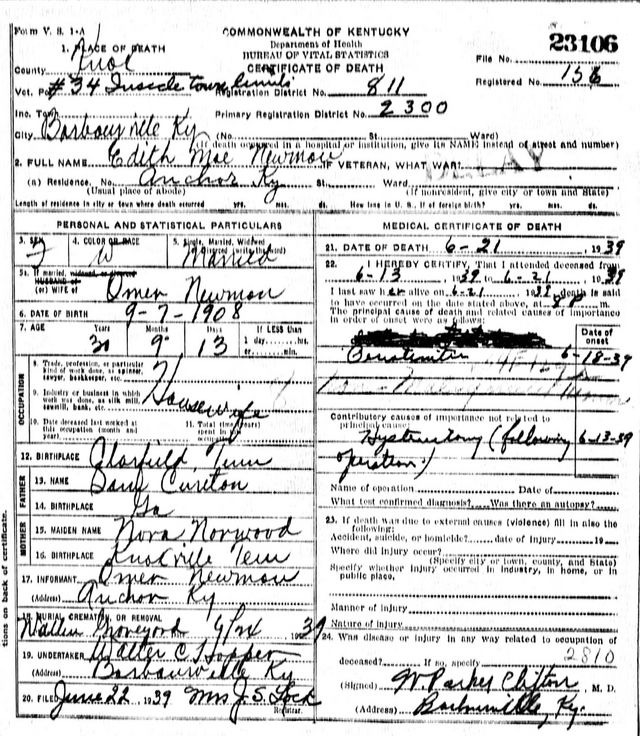 Form V. S. 1-A
COMMONWEALTH OF KENTUCKY
Department of Health
BUREAU OF VITAL STATISTICS
CERTIFICATE OF DEATH
23106
File No.
Registered No. 156
1. PLACE OF DEATH
County Knox
Vot. Pct #34 Inside town limits
Registration District No. 811
Inc. Town
Primary Registration District No. 2300
City Barbourville Ky (No. St. Ward)
(If death occurred in a hospital or institution, give its NAME instead of street and number)
2. FULL NAME Edith Mae Newman IF VETERAN, WHAT WAR?
(a) Residence, No. Anchor Ky St. Ward
(Usual place of abode) (If nonresident, give city or town and State)
Length of residence in city or town where death occurred yrs. mos. ds. How long in U. S., if of foreign birth? yrs. mos. ds.
PERSONAL AND STATISTICAL PARTICULARS
3. SEX F
4. COLOR OR RACE W
5. Single, Married, Widowed or Divorced (write the word) Married
5a. If married, widowed, or divorced
HUSBAND of
(or) WIFE of Omer Newman
6. DATE OF BIRTH 9-7-1908
7. AGE Years Months Days If LESS than
30 9 13 1 day hrs.
or min.
OCCUPATION
8. Trade, profession, or particular
kind of work done, as spinner,
sawyer, bookkeeper, etc.
9. Industry or business in which
work was done, as silk mill,
sawmill, bank, etc.
Housewife
10. Date deceased last worked at
this occupation (month and
year)
11. Total time (years)
spent in this
occupation
12. BIRTHPLACE Tenn
FATHER
13. NAME Cureton
14. BIRTHPLACE Ga
MOTHER
15. MAIDEN NAME Nora Norwood
16. BIRTHPLACE Knoxville Tenn
17. INFORMANT Omer Newman
(Address) Anchor Ky
18. BURIAL, CREMATION, OR REMOVAL
Graveyard 1939
19. UNDERTAKER Walter C Hopper
(Address) Barbourville Ky
20. FILED June 22, 1939 Mrs J. S. Lock
Registrar.
MEDICAL CERTIFICATE OF DEATH
21. DATE OF DEATH 6-21, 1939
22. I HEREBY CERTIFY, That I attended deceased from
6-13, 1939 to 6-21, 1939
I last saw her alive on 6-21, 1939, death is said
to have occurred on the date stated above, at m.
The principal cause of death and related causes of importance
in order of onset were as follows:
Date of
onset
6-18-39
Contributory causes of importance not related to
principal cause:
Hysterectomy (following 6-13-39
operation)
Name of operation Date of
What test confirmed diagnosis? Was there an autopsy?
23. If death was due to external causes (violence) fill in also the
following:
Accident, suicide, or homicide? date of injury 19
Where did injury occur?
(Specify city or town, county, and State)
Specify whether injury occurred in industry, in home, or in
public place,
Manner of injury
Nature of injury
24. Was disease or injury in any way related to occupation of
deceased? If so, specify 2810
(Signed) W Parker Clifton, M. D.
(Address) Barbourville, Ky.
tions on back of certificate.